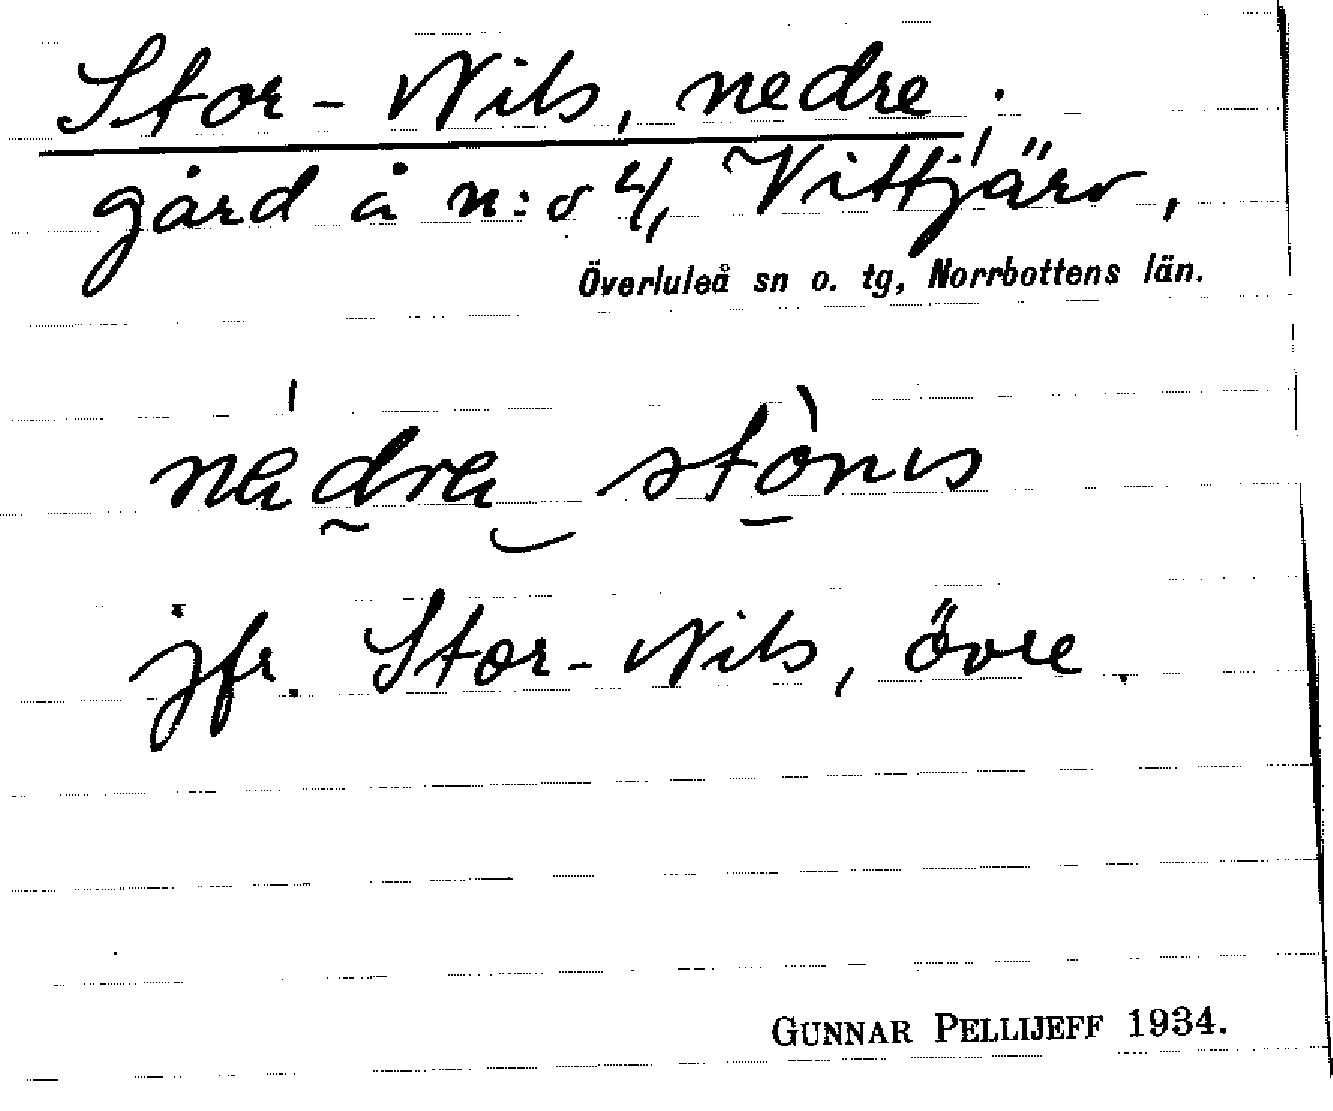 Stor-Nils, nedre.
gård å n:o 4, Vittjärv,
Överluleå sn o. tg, Norrbottens län.
jfr. Stor-Nils, övre.
GUNNAR PELLIJEFF 1934.